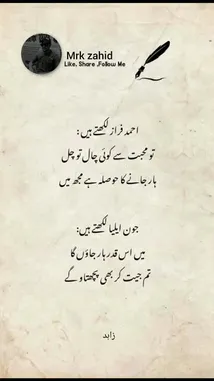 Mrk zahid
Like, Share ,Follow Me
احمد فراز لکھتے ہیں:
تو محبت سے کوئی چال تو چل
ہار جانے کا حوصلہ ہے مجھ میں
جون ایلیا لکھتے ہیں:
میں اس قدر ہار جاؤں گا
تم جیت کر بھی پچھتاوگے
زاہد